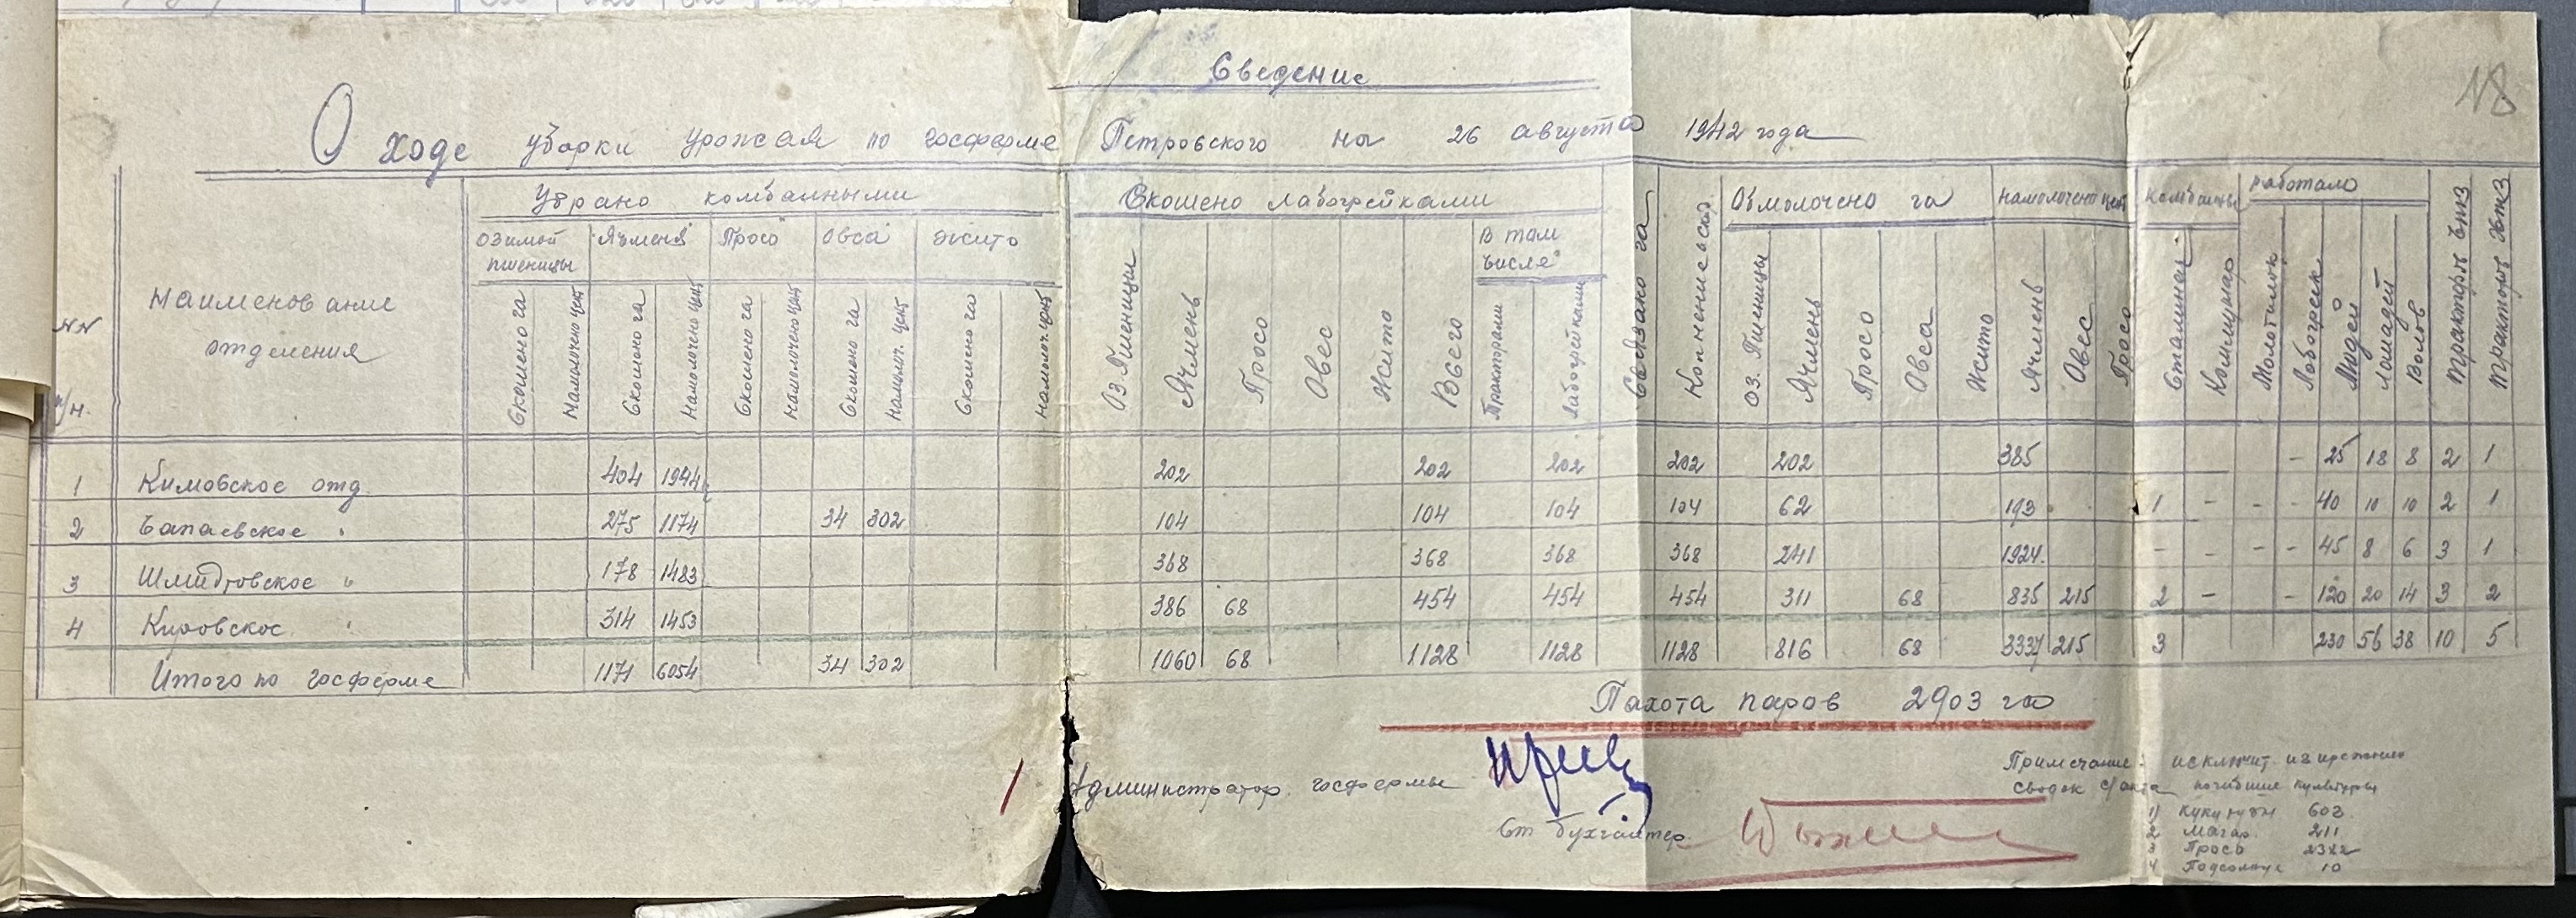 18
Сведение
О ходе уборки урожая по госферме Петровского на 26 августа 1942 года
NN п/н.
Наименование отделения
Убрано комбайнами
Скошено лабогрейками
Связано га
Копнение в сад.
Обмолочено га
Намолочено цент
Комбайны
Работало
Тракторов СТЗ
Тракторов ХТЗ
озимой пшеницы
Ячменя
Просо
Овса
жито
Оз. Пшеницы
Ячмень
Просо
Овес
Жито
Всего
В том числе
Тракторами
Лабогрейками
Оз. Пшеницы
Ячмень
Просо
Овса
Жито
Ячмень
Овес
Просо
Сталинец
Комунар
Молотилок
Лобогреек
Людей
Лошадей
Волов
Скошено га
Намолочено цент
Скошено га
Намолочено цент
Скошено га
Намолочено цент
Скошено га
Намолоч. цент
Скошено га
Намолоч. цент
1 Кимовское отд. 404 1944 202 202 202 202 202 385 - 25 18 8 2 1
2 Чапаевское " 275 1174 34 302 104 104 104 104 62 193 1 - - - 40 10 10 2 1
3 Шмидтовское " 178 1483 368 368 368 368 241 1924 - - - - 45 8 6 3 1
4 Кировское " 314 1453 386 68 454 454 454 311 68 835 215 2 - - 120 20 14 3 2
Итого по госферме 1171 6054 34 302 1060 68 1128 1128 1128 816 68 3337 215 3 230 56 38 10 5
Пахота паров 2903 га
Администратор госфермы
Ст бухгалтер
Примечание: исключит. из
сводок с/акта погибшие культуры
1) Кукурузы 602
2 Магар. 211
3 Просо 2322
4 Подсолнуг 10